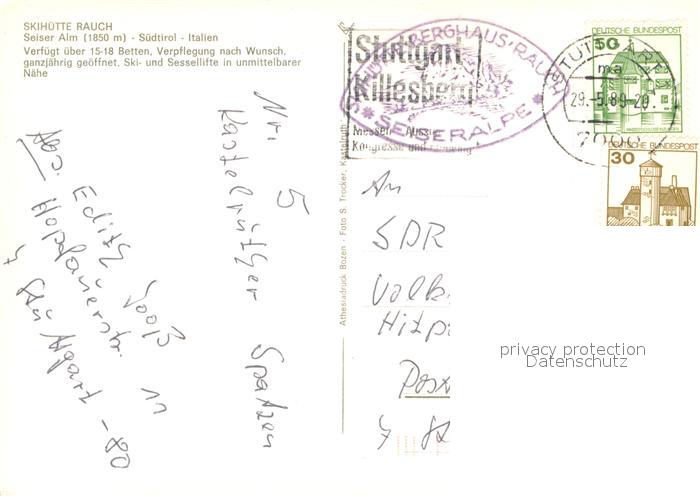 SKIHÜTTE RAUCH
Seiser Alm (1850 m) - Südtirol - Italien
Verfügt über 15-18 Betten, Verpflegung nach Wunsch,
ganzjährig geöffnet, Ski- und Sessellifte in unmittelbarer
Nähe
Nr. 5
Kastelruther Spatzen
Abs. Edith
Athesiadruck Bozen - Foto S. Trocker, Kastelruth
Stuttgart
Killesberg
Messen
Kongresse und
BERGHAUS-RAUCH
SEISERALPE
STUTTGART
ma
29.-5.89-20
7000
50
DEUTSCHE BUNDESPOST
30
DEUTSCHE BUNDESPOST
An
SDR
Volks
Hitp
Post
7
privacy protection
Datenschutz